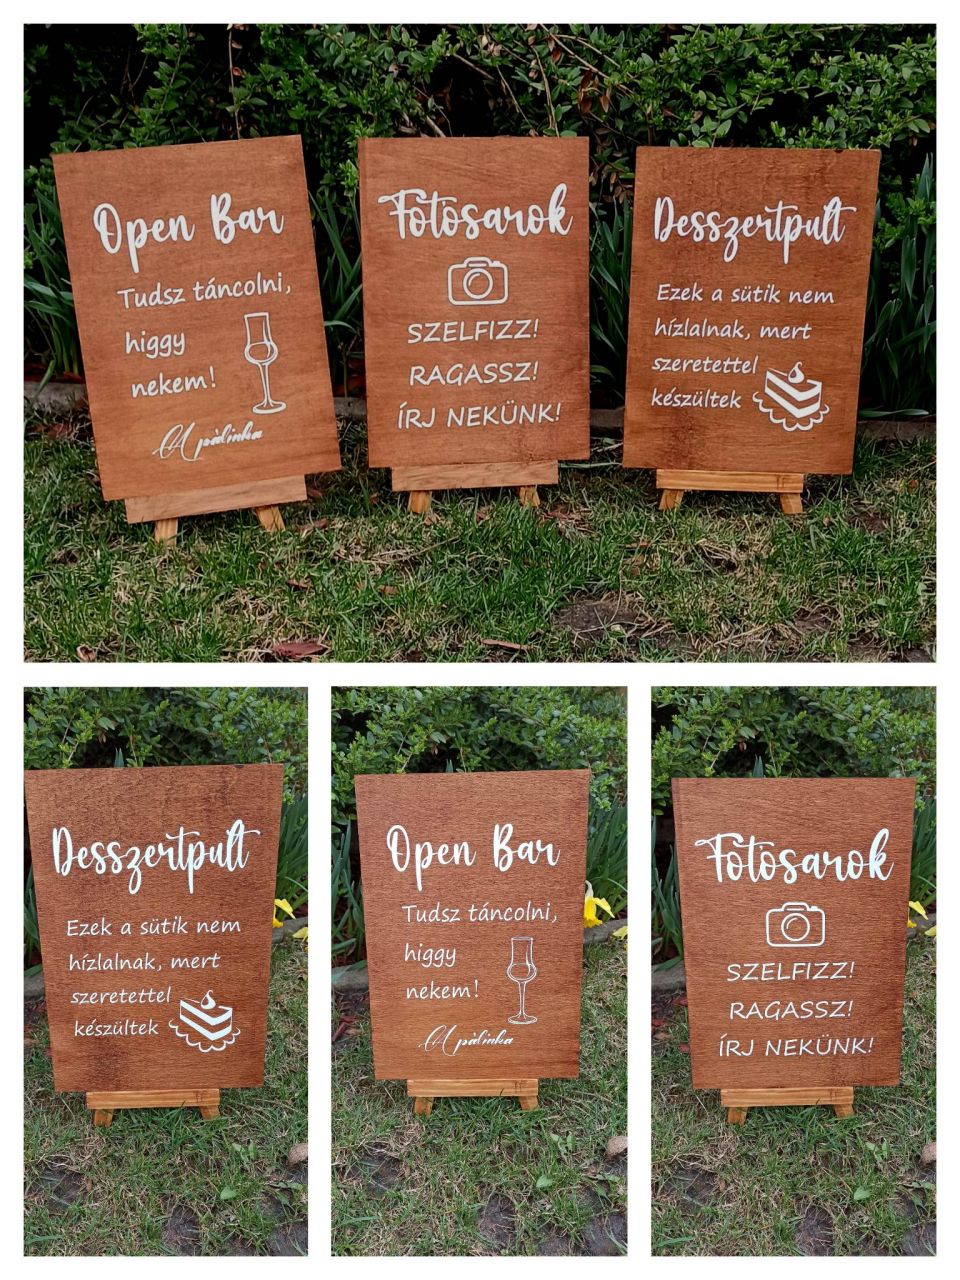 Open Bar
Tudsz táncolni,
higgy
nekem!
A pálinka
Fotósarok
SZELFIZZ!
RAGASSZ!
ÍRJ NEKÜNK!
Desszertpult
Ezek a sütik nem
hízlalnak, mert
szeretettel
készültek
Desszertpult
Ezek a sütik nem
hízlalnak, mert
szeretettel
készültek
Open Bar
Tudsz táncolni,
higgy
nekem!
A pálinka
Fotósarok
SZELFIZZ!
RAGASSZ!
ÍRJ NEKÜNK!